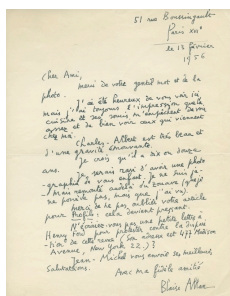 51 rue Boussingault
Paris XIIIe
le 13 février
1956
Cher Ami,
merci de votre gentil mot et de la
photo.
J'ai été heureux de vous voir ici
mais j'ai toujours l'impression que la
cuisine et ses soucis m'empêchent de
et de bien voir ceux qui viennent
chez moi.
Charles-Albert est très beau et
d'une gravité émouvante.
Je crois qu'il a six ou douze
ans.
Je serais ravi d'avoir une photo-
graphie de vous enfant. Je ne suis ja-
mais
ne possède pas, mais que j'ai vu.
merci de ne pas oublier votre article
pour Profils: cela devient pressant.
N'auriez-vous pas une petite lettre à
Henry pour protester contre la dispari-
tion de cette revue (son adresse est 477 Madison
Avenue, New York 22.) ?
Jean-Michel vous envoie ses meilleures
Salutations.
Avec ma fidèle amitié